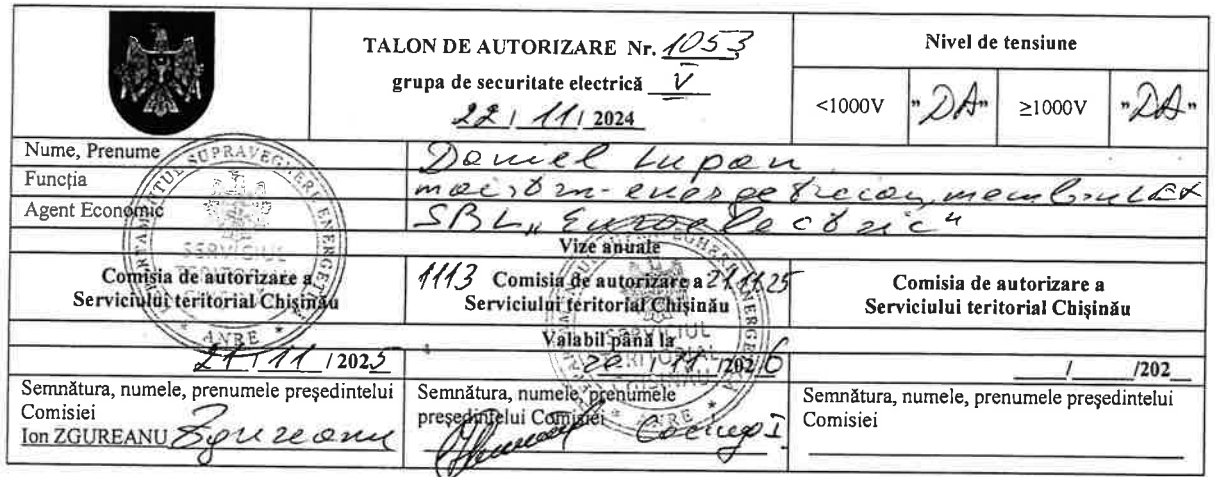 TALON DE AUTORIZARE Nr. 1053
grupa de securitate electrică V
22 / 11 / 2024
Nivel de tensiune
<1000V "DA" ≥1000V "DA"
Nume, Prenume Daniel Lupan
Funcția maistru-energetician, membrul CEX
Agent Economic SRL „Euroelectric"
Vize anuale
Comisia de autorizare a
Serviciului teritorial Chișinău
1113 Comisia de autorizare a 21.11.25
Serviciului teritorial Chișinău
Comisia de autorizare a
Serviciului teritorial Chișinău
Valabil până la
21 / 11 / 2025
20 / 11 / 2026
/ /202
Semnătura, numele, prenumele președintelui
Comisiei
Ion ZGUREANU Zgureanu
Semnătura, numele, prenumele
președintelui Comisiei
Semnătura, numele, prenumele președintelui
Comisiei
SUPRAVEGHERII ENERGETICE
SERVICIUL
* ANRE *
SERVICIUL
TERITORIAL
CHIȘINĂU